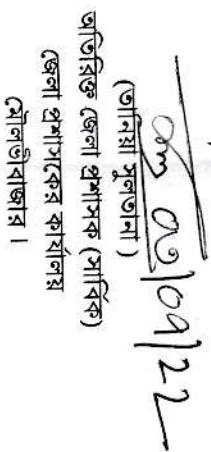 ০৩/০৭/২২
(তানিয়া সুলতানা)
অতিরিক্ত জেলা প্রশাসক (সার্বিক)
জেলা প্রশাসকের কার্যালয়
মৌলভীবাজার।